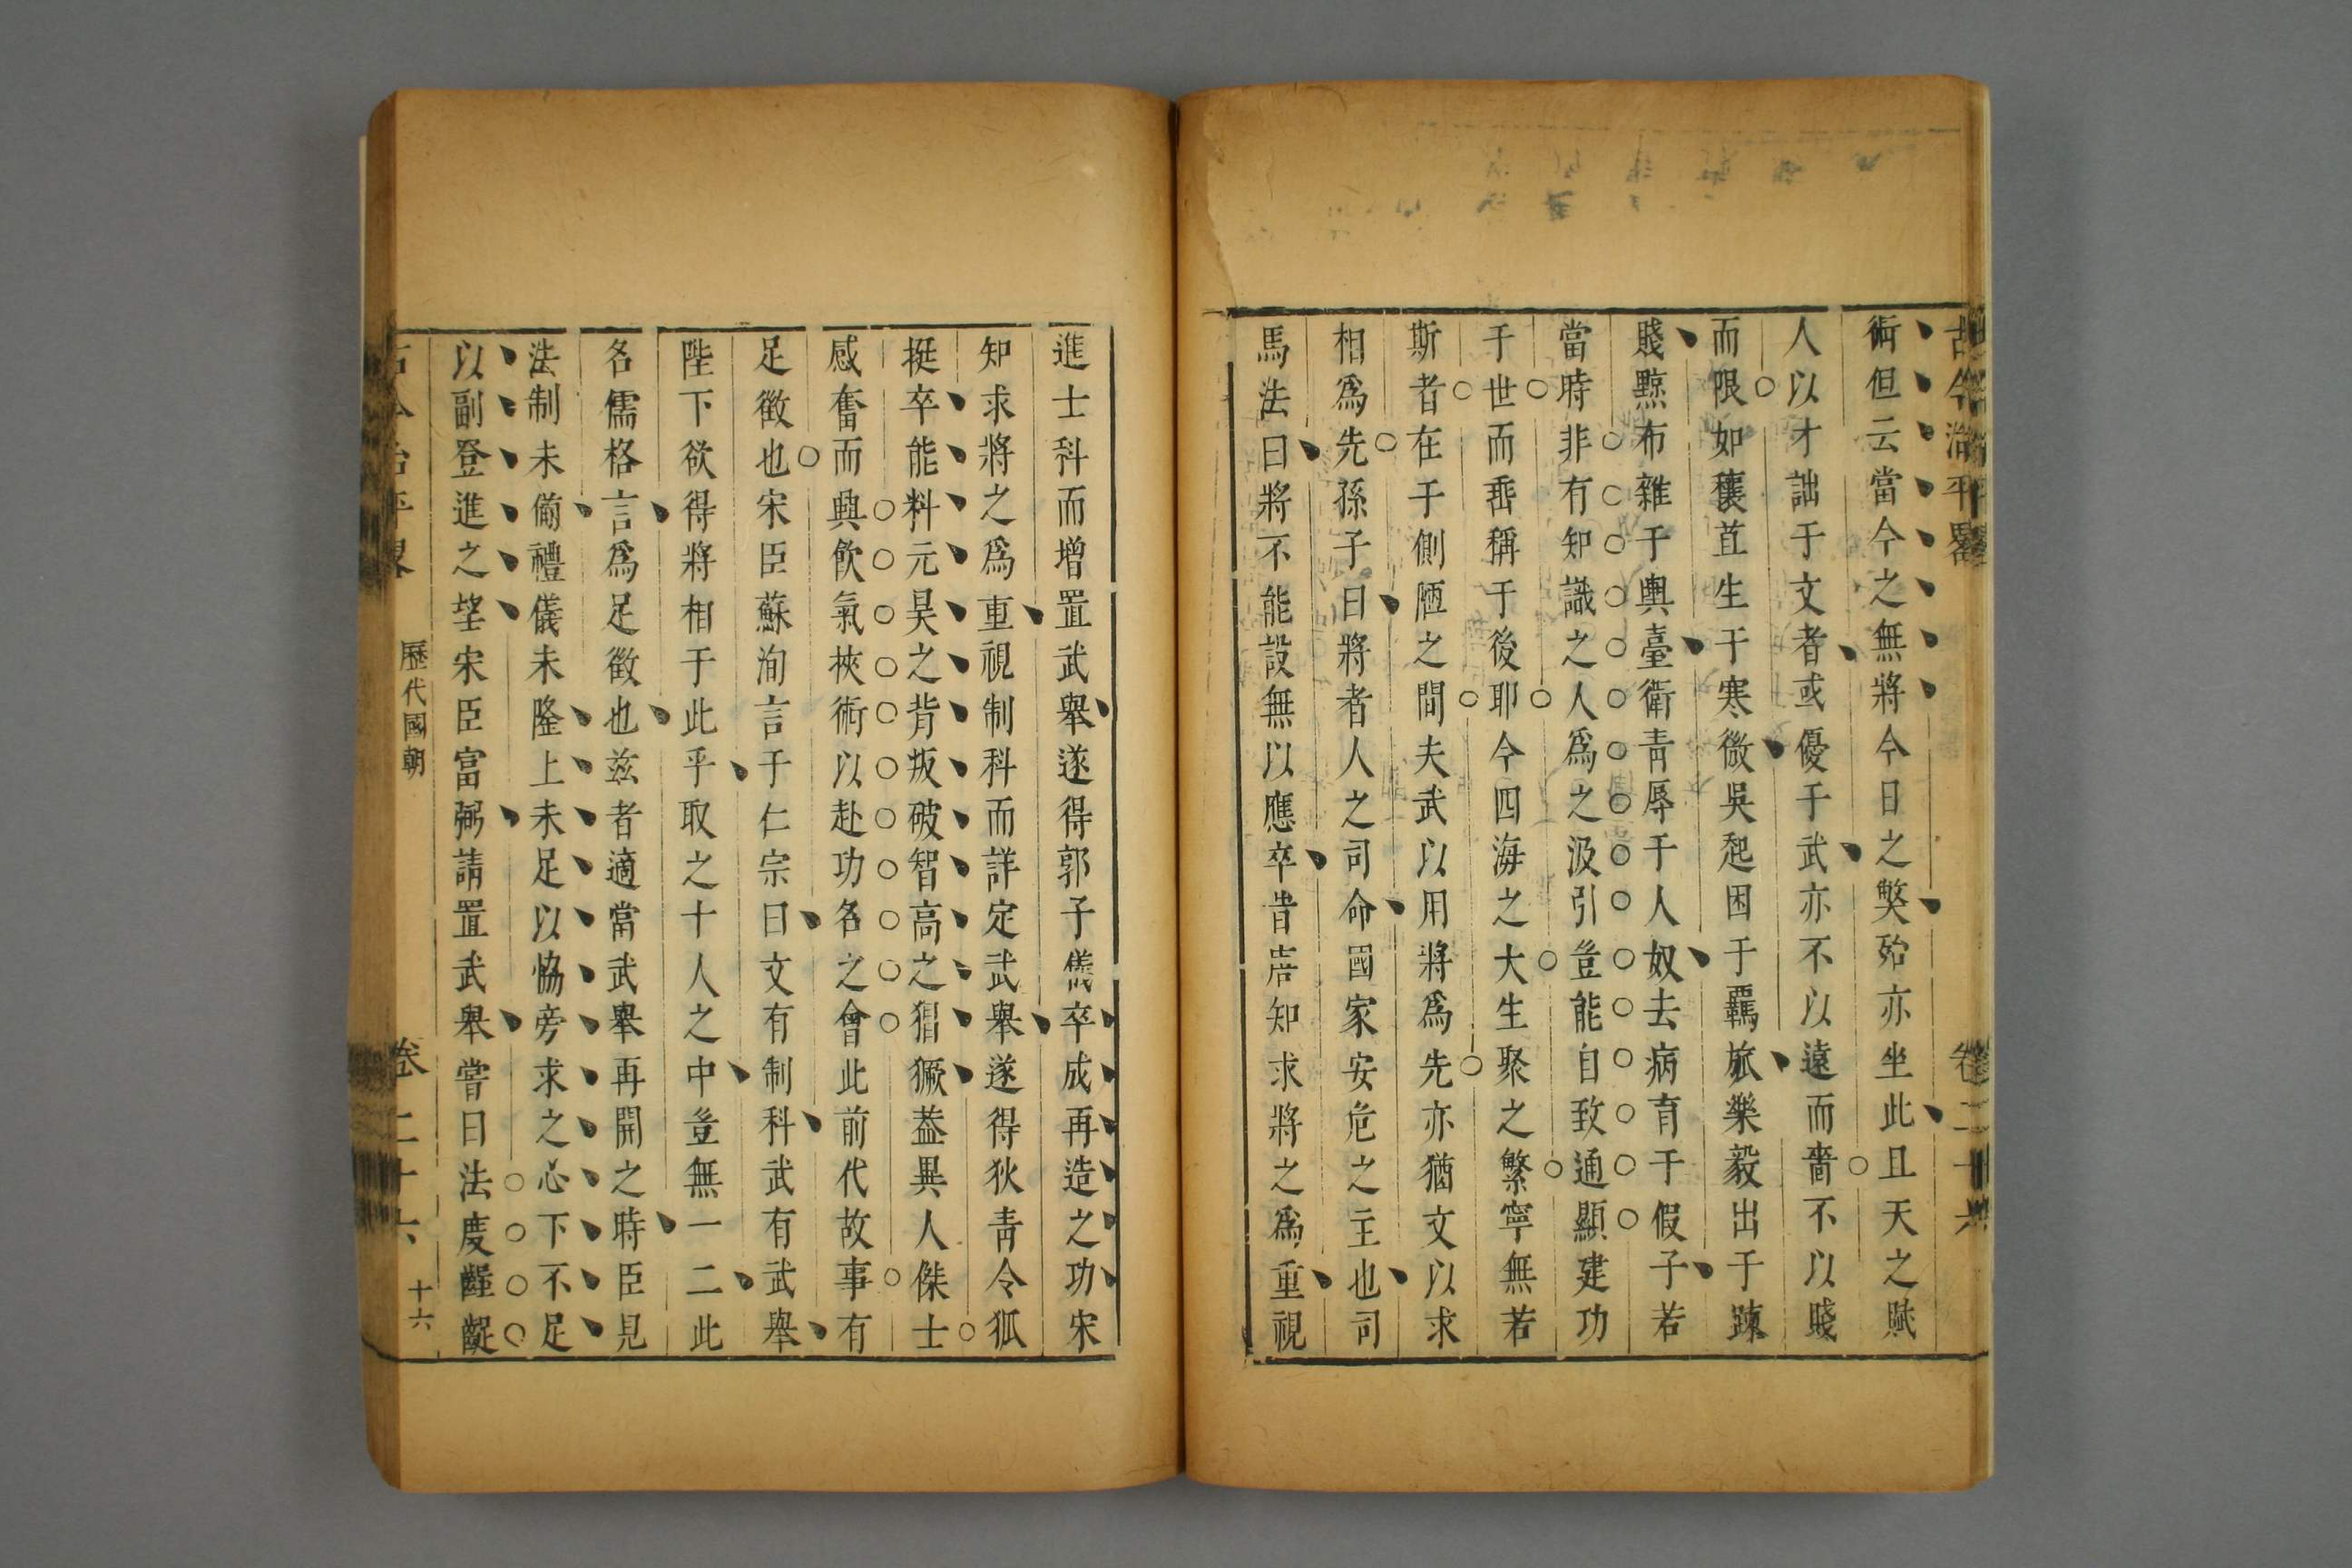 古今治平畧 卷二十六
術但云當今之無將今日之獘殆亦坐此且天之賦
人以才詘于文者或優于武亦不以遠而嗇不以賤
而限如穰苴生于寒微吳起困于羈旅樂毅出于踈
賤黥布雜于輿臺衛青辱于人奴去病育于假子若
當時非有知識之人爲之汲引豈能自致通顯建功
于世而垂稱于後耶今四海之大生聚之繁寧無若
斯者在于側陋之間夫武以用將爲先亦猶文以求
相爲先孫子曰將者人之司命國家安危之主也司
馬法曰將不能設無以應卒昔唐知求將之爲重視
進士科而增置武舉遂得郭子儀卒成再造之功宋
知求將之爲重視制科而詳定武舉遂得狄青令狐
挺卒能料元昊之背叛破智高之猖獗葢異人傑士
感奮而興飲氣挾術以赴功名之會此前代故事有
足徵也宋臣蘇洵言于仁宗曰文有制科武有武舉
陛下欲得將相于此乎取之十人之中豈無一二此
名儒格言爲足徵也兹者適當武舉再開之時臣見
法制未僃禮儀未隆上未足以恊旁求之心下不足
以副登進之望宋臣富弼請置武舉嘗曰法度齷齪
古今治平畧 歷代國朝 卷二十六 十六